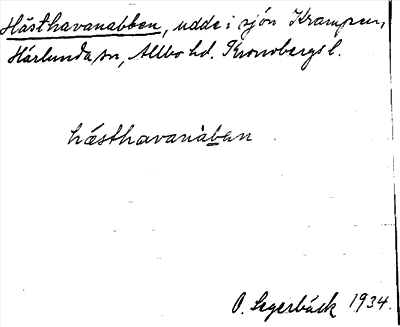 Hästhavanabben, udde i sjön Krampen,
Härlunda sn, Allbo hd. Kronobergs l.
hästhavanàben
O. Segerbäck 1934.